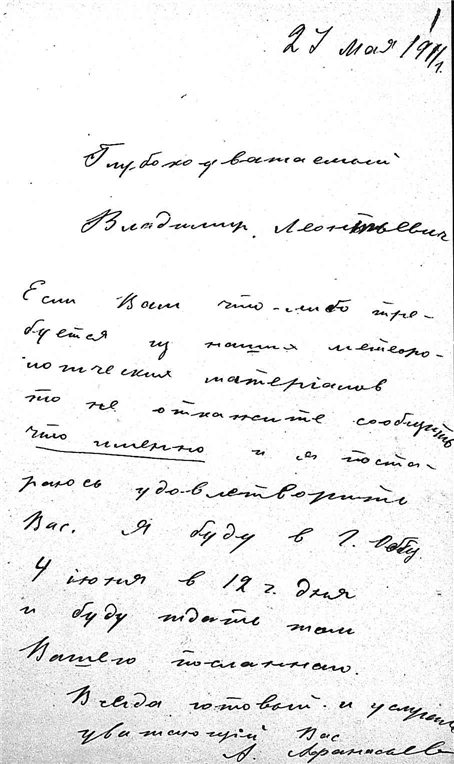 27 мая 1911 г.
Глубокоуважаемый
Владимир Леонтьевич
Если Вам что-либо тре-
буется из наших метеоро-
логических матерiалов
то не откажите сообщить
что именно и я поста-
раюсь удовлетворить
Вас. Я буду в Г.
4 iюня в 12 ч. дня
и буду ждать там
Вашего посланнаго.
Всегда готовый к услугам
уважающiй Вас
А. Афанасьев